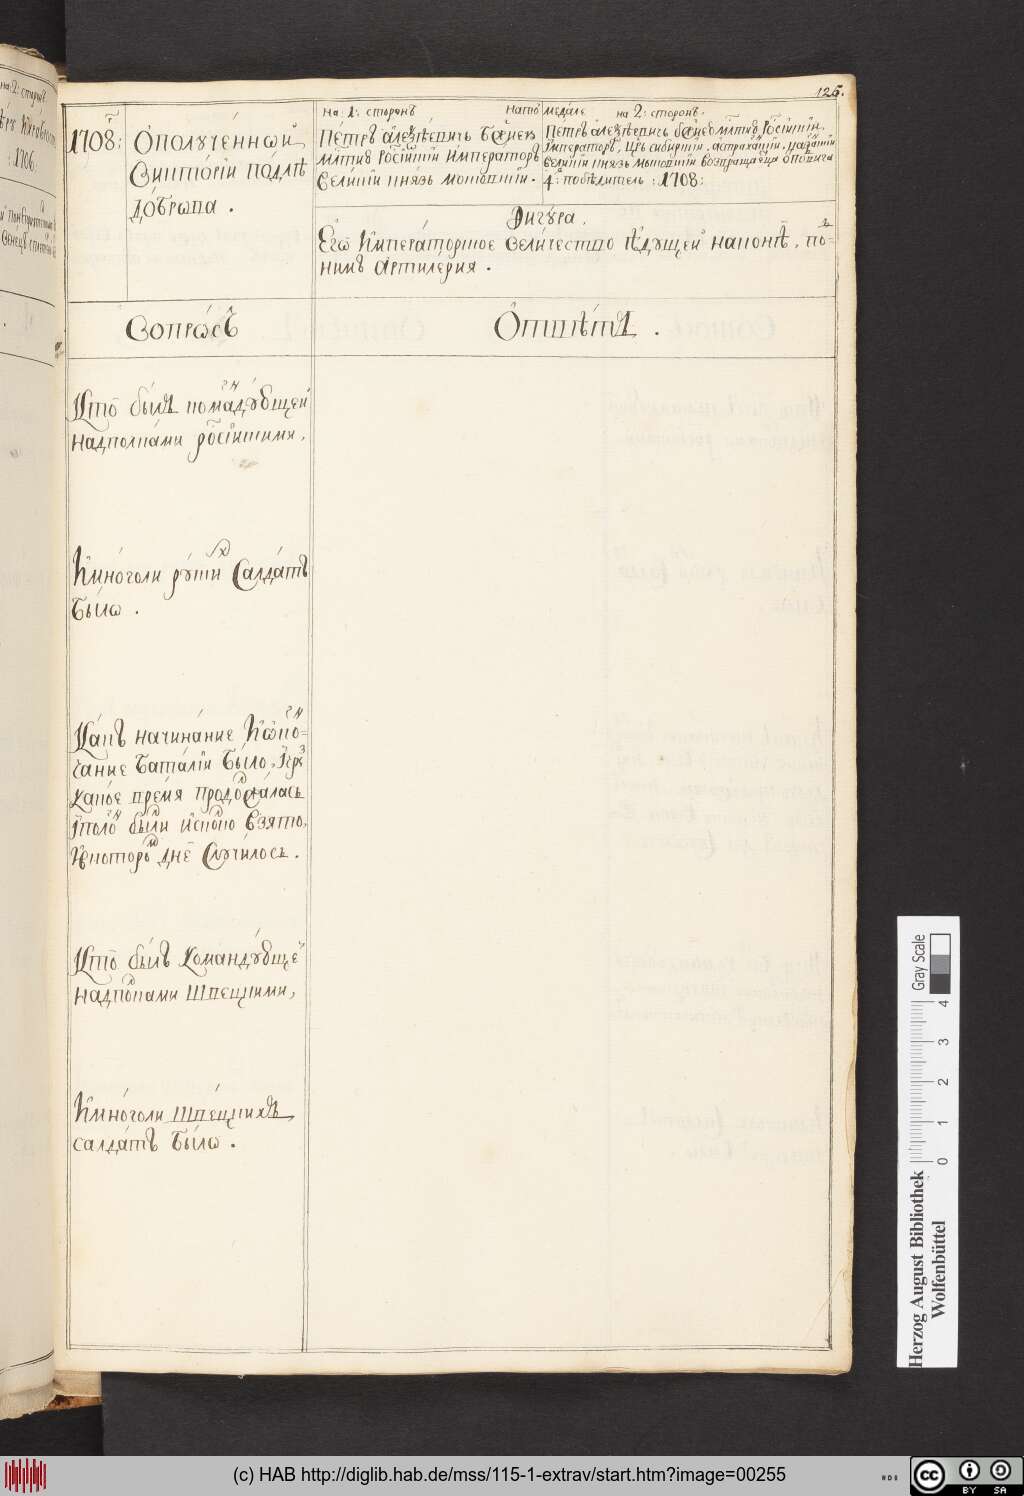 126.
1708:
Ѻполученнои
Викторїи подлѣ
Доброва.
на 1: сторонѣ
на той медале
на 2: сторонѣ.
Петръ алеѯѣевичь Бжїею
млтию Росїискїи Императоръ
Великїи князь московскїи.
Петръ алеѯѣевичь бжїею млтию Росїискїи
Императоръ, Црь сибирскїи, астраханскїи, казанскїи
великїи князь московскїи возвращается ѡполчига
побѣдитель: 1708:
Фигура.
Егѡ Императорское величество ѣдущеи наконѣ, по-
нимъ Артилерия.
Вопросъ
Ѿвѣтъ.
Кто былъ командующеи
надполками росїискими,
Імноголи рускихъ Салдатъ
было.
Какъ начинание Іѡкон-
чание Баталїи Было, Ічрез
какое время продолжалась
Іколко были Ісколко взято,
Івкоторомъ днѣ Случилось.
Кто былъ командующеи
надполками Шпецкими,
Імноголи Шпецкихъ
салдатъ Было.
на: 2: сторонѣ
: 1706:
Gray Scale
0 1 2 3 4
Herzog August Bibliothek
Wolfenbüttel
(c) HAB http://diglib.hab.de/mss/115-1-extrav/start.htm?image=00255
cc BY SA